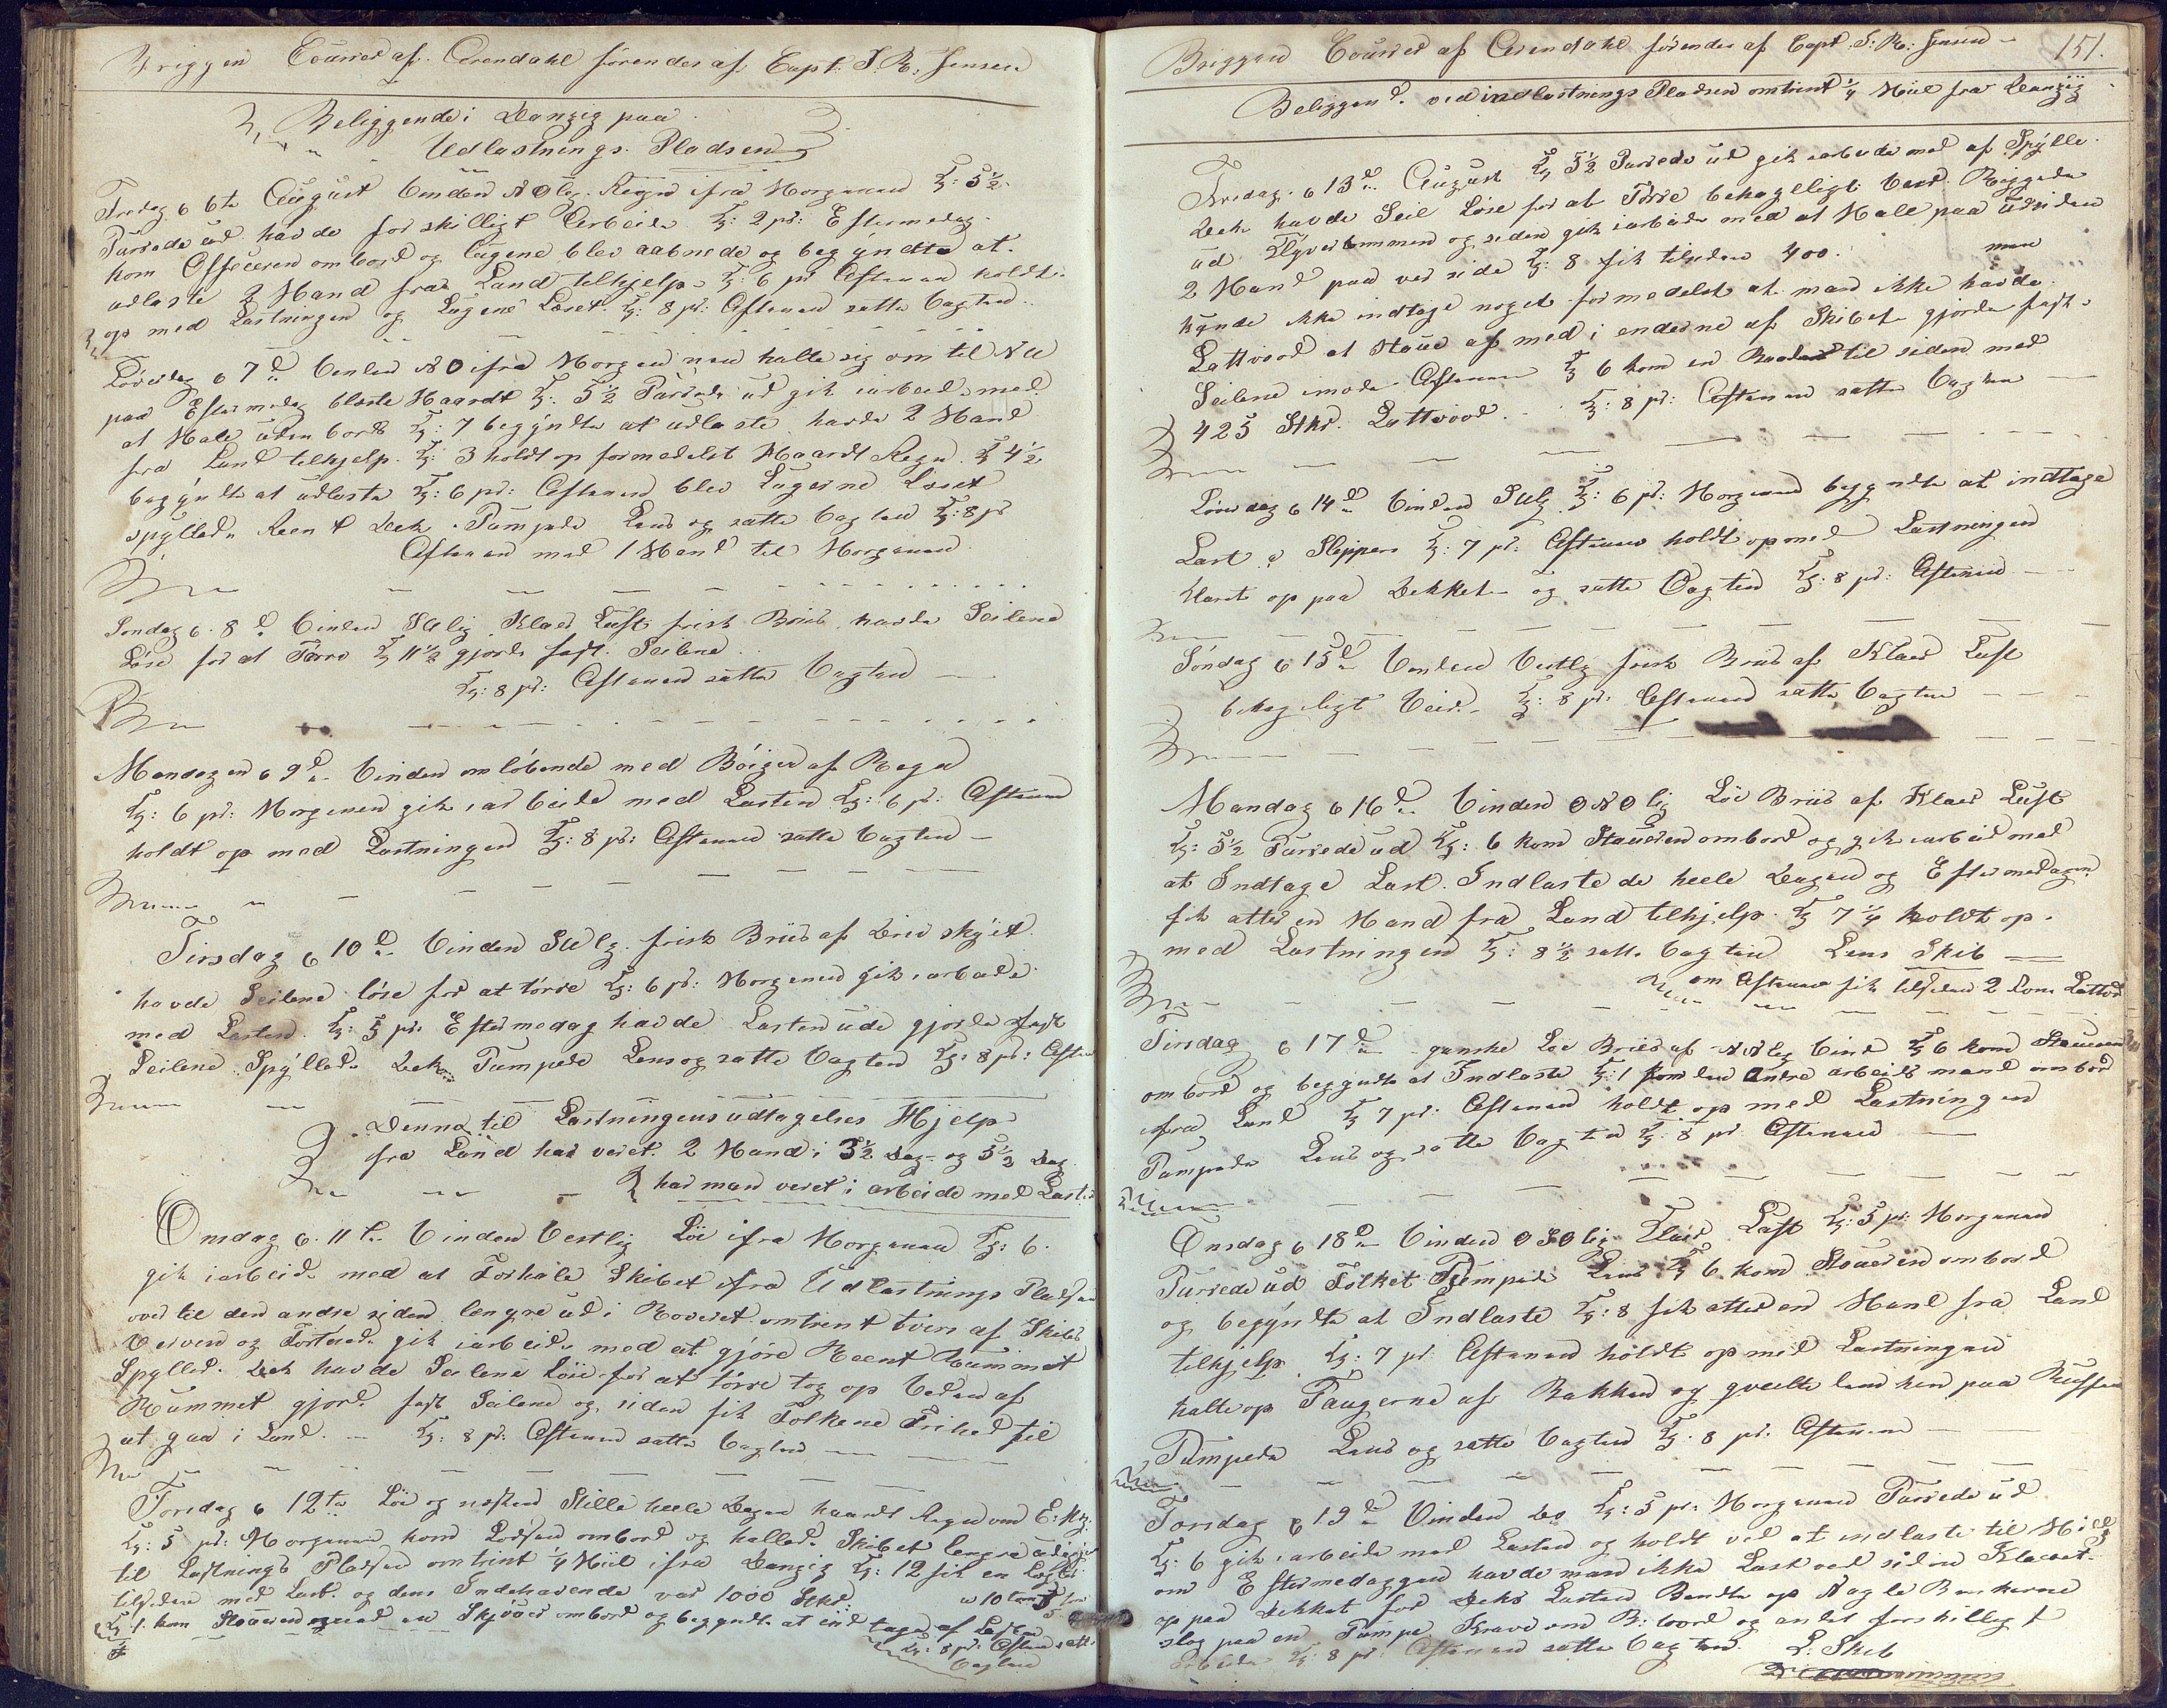 Briggen Courier af Arendahl förendes af Capt: T. R. Jensen
Beliggende i Danzig paa
Udlastnings Pladsen
Fredag 6te August Vinden NOlig Regn ifra Morgenen Kl: 5½
Purrede ud havde forskilligt Arbeide Kl: 2 pr: Eftermedag
kom Officeren ombord og Lugene blev aabnede og begyndte at
udlaste 2 Mand fra Land tilhjelp Kl: 6 pr Aftenen holdte
op med Lastningen og Lugene Læset. Kl: 8 pr: Aftenen satte Vagten
Löverdag 7de Vinden NO ifra Morgenen halte sig om til NW
paa Eftermedag blæste Haardt Kl: 5½ Purrede ud gik iarbeide med
at Male uden bords Kl: 7 begyndte at udlaste havde 2 Mand
fra Land tilhjelp. Kl: 3 holdt op formedelst Haardt Regn Kl 4½
begyndte at udlaste Kl: 6 pr: Aftenen blev Lugerne Læset
spyllede Reent Dek Pumpede Lens og satte Vagten Kl: 8 pr
Aftenen med 1 Mand til Morgenen
Söndag 8de Vinden SWlig Klaer Luft frisk Briis havde Seilene
Löse for at Törre Kl 11½ gjorde fast Seilene
Kl: 8 pr: Aftenen satte Vagten
Mandagen 9de Vinden omlöbende med Böiger af Regn
Kl: 6 pr: Morgenen gik iarbeide med Lasten Kl: 6 pr: Aftenen
holdt op med Lastningen Kl: 8 pr: Aftenen satte Vagten
Tirsdag 10de Vinden SWlg frisk Briis af Driv skyet
havde Seilene löse for at törre Kl: 6 pr: Morgenen gik iarbeide
med Lasten Kl: 5 pr: Eftermedag havde Lasten ude gjorde fast
Seilene Spyllede Dek Pumpede Lens og satte Vagten Kl: 8 pr: Aften
Denne til Lastningens udtagelses Hjelp
fra Land har veret 2 Mand i 3½ Dag og 5½ Dag
har man veret i arbeide med Last
Onsdag 11te Vinden Vestlig Löi ifra Morgenen Kl: 6
gik iarbeide med at Forhale Skibet ifra Udlastnings Pladsen
over til den andre siden lengre ud i Reveret omtrent tvers af Skibs
Verven og Fortöiede gik iarbeide med at gjöre Reent Rummet
Spyllede Dek havde Seilene Löse for at törre tog op Veden af
Rummet gjorde fast Seilene og siden fik Folkene Frihed til
at gaa i Land. Kl: 8 pr: Aftenen satte Vagten
Torsdag 12te Löi og næsten Stille heele Dagen haardt Regn om E: M:
Kl: 5 pr: Morgenen kom Lodsen ombord og hallede Skibet lengre udigjen
til Lastnings Pladsen omtrent ¼ Miil ifra Danzig Kl: 12 fik en
tilsiden med Last og dens Indehavende var 1000 Stkr:
Kl 1 kom Stoueren ombord og begyndte at indtage af Lasten
Kl: 8 pr: Aften satte
Vagten
Briggen Courier af Arendahl förendes af Capt. T. R: Jensen 151.
Beliggend. ved indlastnings Pladsen omtrent ¼ Miil fra Danzig
Fredag 13de August Kl 5½ Purrede ud gik iarbeide med at Spylle
Dek havde Seil Löse for at Törre behageligt Veir. Reggede
ud Klyverbommen og siden gik iarbeide med at Male paa Udsiden
2 Mand paa ver side Kl: 8 fik tilsiden 400. men
kunde ikke indtage noget formedelst at man ikke havde
Lattvood at Staue af med i enderne af Skibet gjorde fast
Seilene imode Aftenen Kl 6 kom en Baad til siden med
425 Stkr. Lattvood. Kl: 8 pr: Aftenen satte Vagten
Löverdag 14de Vinden SWlg Kl: 6 pr: Morgenen begyndte at indtage
Last Sleppers Kl: 7 pr: Aftenen holdt op med Lastningen
Klarte op paa Dekket og satte Vagten Kl: 8 pr: Aftenen
Söndag 15de Vinden Vestlg frisk Briis af Klaer Luft
behageligt Veir. Kl: 8 pr: Aftenen satte Vagten
Mandag 16de Vinden ONOlig Löi Briis af Klaer Luft
Kl: 5½ Purrede ud Kl: 6 kom Staueren ombord og gik iarbeid med
at Indtage Last. Indlaste de heele Dagen og Eftermedagen
fik atter en Mand fra Land tilhjelp Kl 7¼ holdt op
med Lastningen Kl: 8½ satte Vagten Lens Skib
om Aftenen fik tilsiden 2 Lattvod
Tirsdag 17de ganske Löi Briis af NNlig Vind Kl 6 kom Staueren
ombord og begyndte at Indlaste Kl: 1 kom den Andre arbeids mand ombord
ifra Land Kl 7 pr: Aftenen holdt op med Lastningen
Pumpede Lens og satte Vagten Kl: 8 pr Aftenen
Onsdag 18de Vinden OSOlig Klaer Luft Kl: 5 pr: Morgenen
Purrede ud Folket Pumpede Lens Kl 6 kom Staueren ombord
og begyndte at Indlaste Kl: 8 fik atter en Mand fra Land
tilhjelp Kl: 7 pr: Aftenen holdt op med Lastningen
halte op Taugerne af Bakken og qveilte dem hen paa Ruffen
Pumpede Lens og satte Vagten Kl. 8 pr: Aftenen
Torsdag 19de Vinden Do Kl: 5 pr: Morgenen Purrede ud
Kl: 6 gik iarbeide med Lasten og holdt ved at indlaste til Midd
om Eftermedaggen havde man ikke Last ved siden Klarert
op paa Dekket for Deks Lasten Bendte op Nagle Benkerne
slog paa en Pumpe Krave om B: bord og andet forskilligt
Arbeide Kl: 8 pr: Aftenen satte Vagten. L: Skib